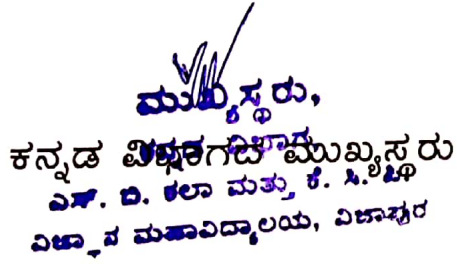 ಮುಖ್ಯಸ್ಥರು,
ಕನ್ನಡ ವಿಭಾಗದ ಮುಖ್ಯಸ್ಥರು
ಎಸ್. ಬಿ. ಕಲಾ ಮತ್ತು ಕೆ. ಸಿ. ಪಿ
ವಿಜ್ಞಾನ ಮಹಾವಿದ್ಯಾಲಯ, ವಿಜಾಪುರ